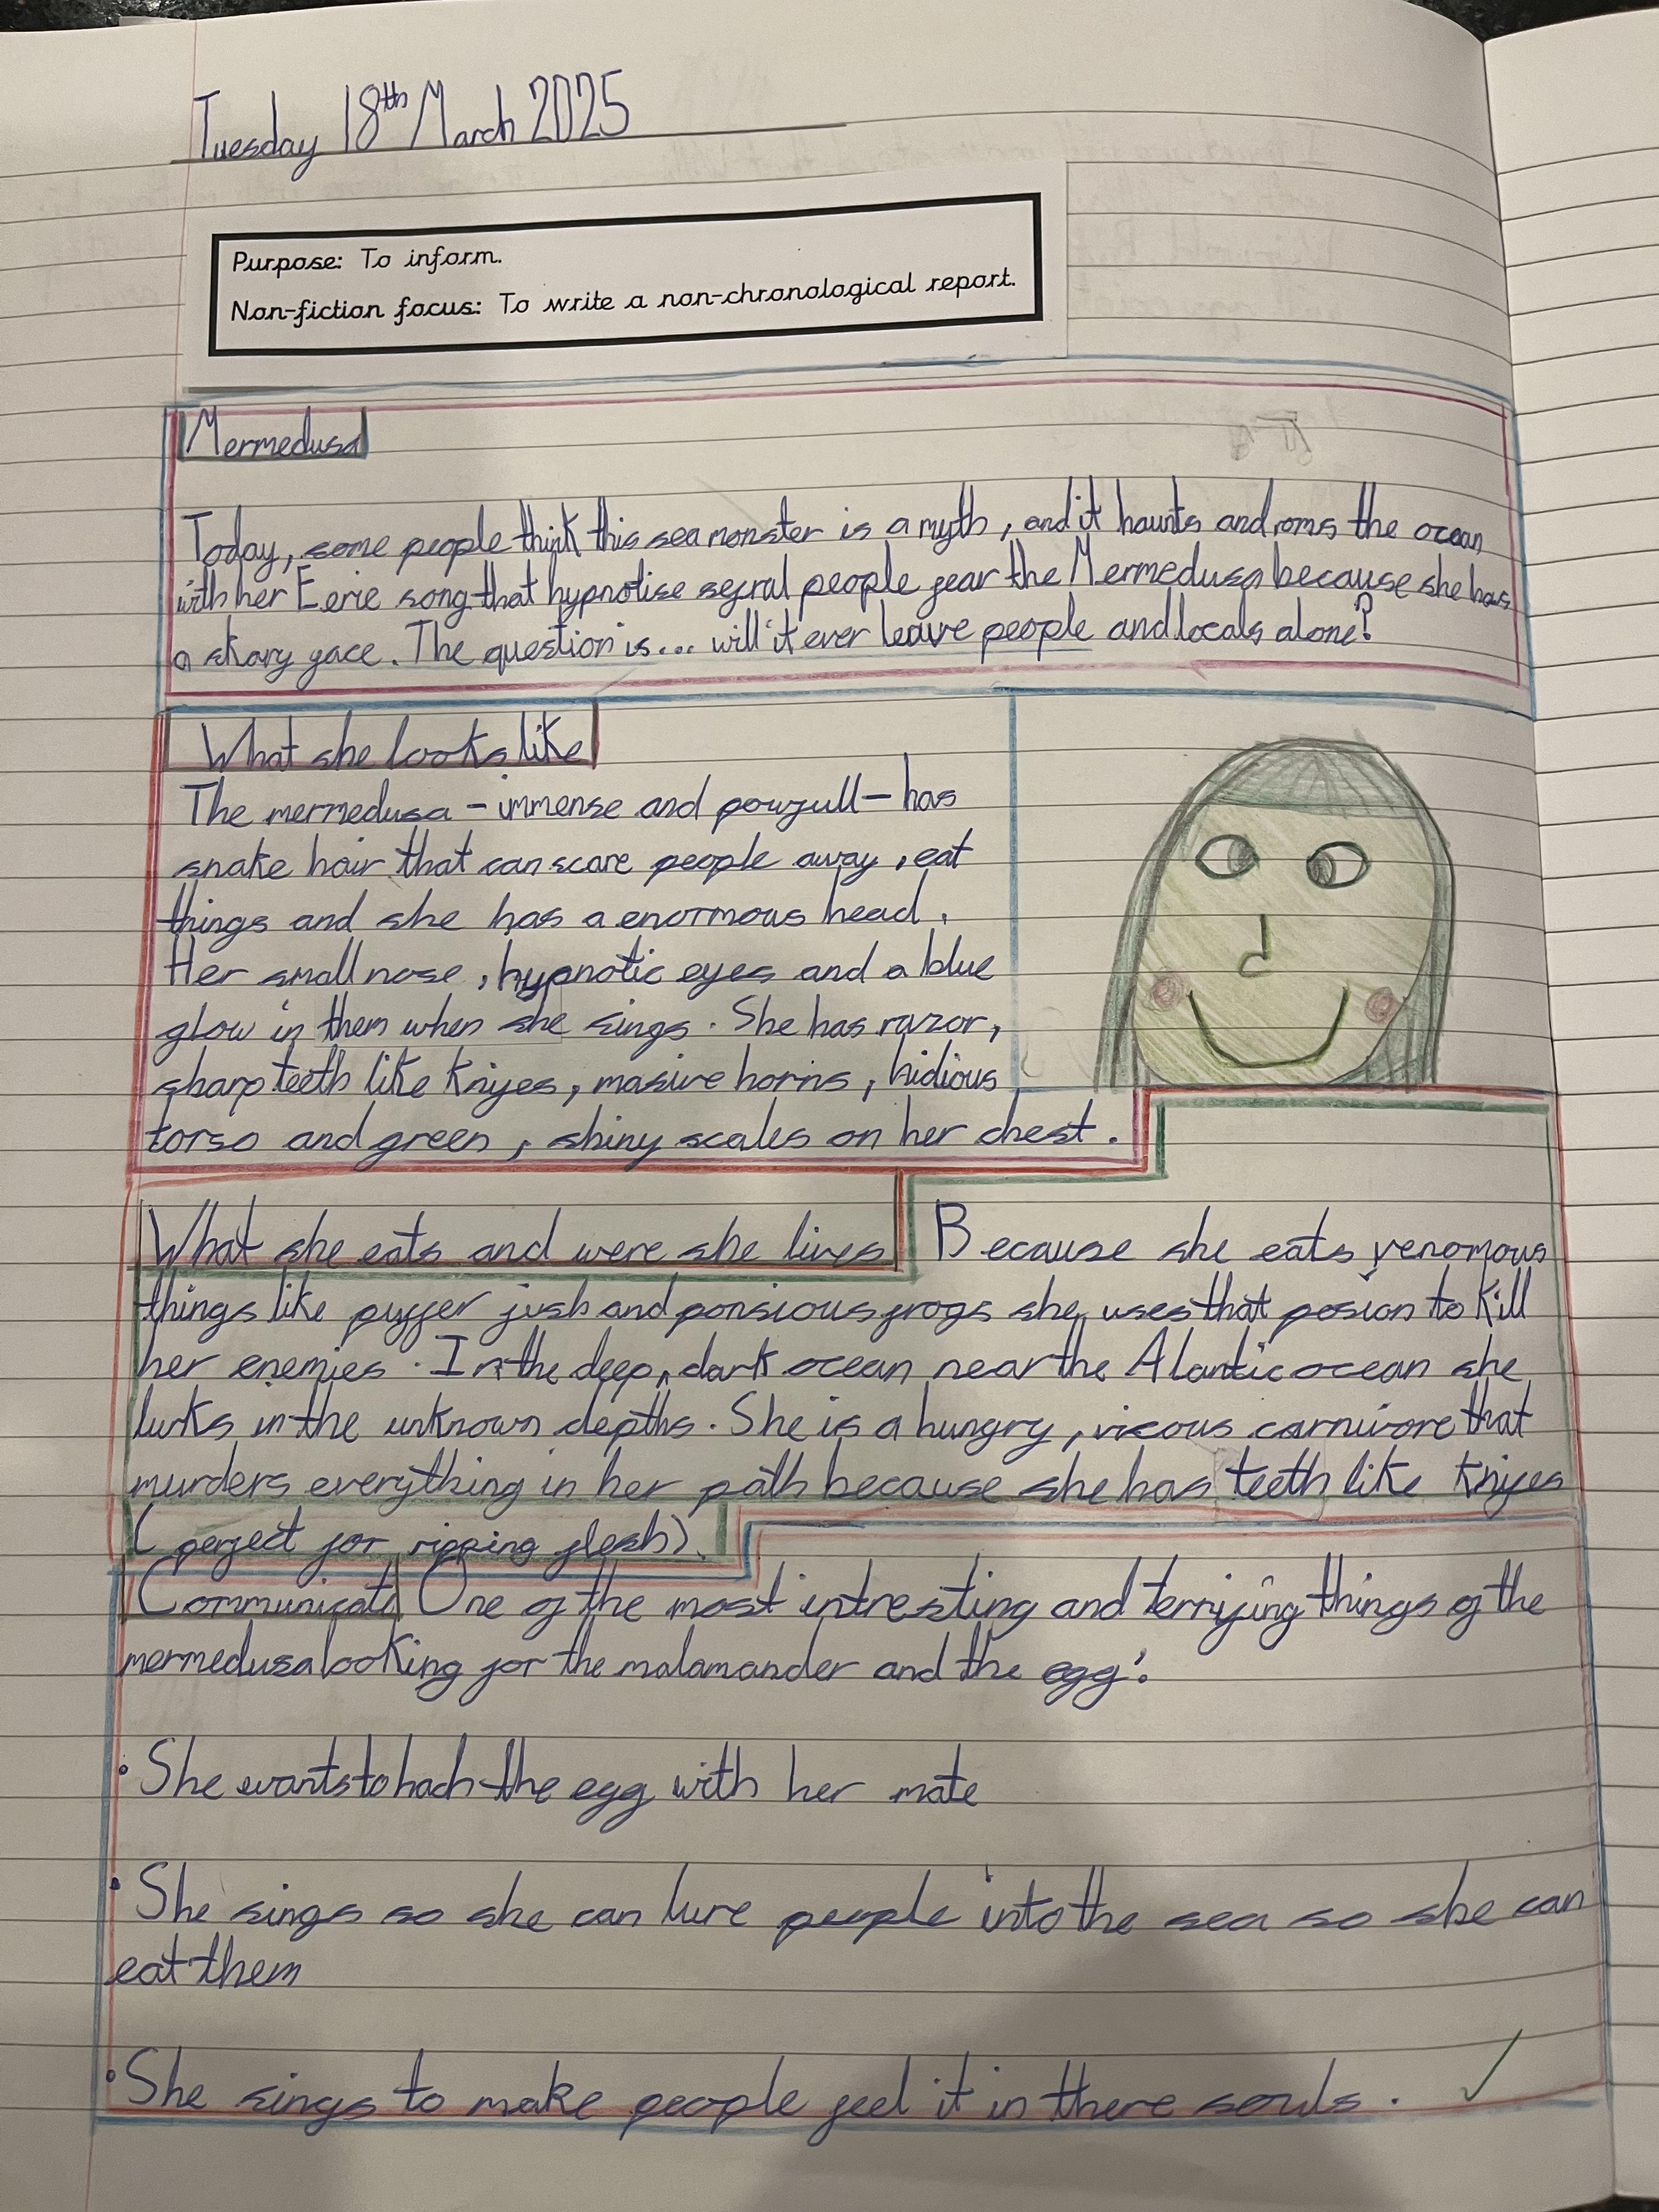 Tuesday 18th March 2025
Purpose: To inform.
Non-fiction focus: To write a non-chronological report.
Mermedusa
Today, some people think this sea monster is a myth, and it haunts and roms the ocean
with her Eerie song that hypnotise sefral people fear the Mermedusa because she has
a skary face. The question is... will it ever leave people and locals alone?
What she looks like
The mermedusa - immense and powfull - has
snake hair that can scare people away, eat
things and she has a enormous head.
Her small nose, hypnotic eyes and a blue
glow in them when she sings. She has razor,
sharp teeth like knifes, masive horns, hidious
torso and green, shiny scales on her chest.
What she eats and were she lives Because she eats venomous
things like puffer fish and ponsious frogs she uses that posion to kill
her enemies. In the deep, dark ocean near the Alantic ocean she
lurks in the unknown depths. She is a hungry, vicous carnivore that
murders everything in her path because she has teeth like knifes
(perfect for ripping flesh).
Communicate One of the most intresting and terrifing things of the
mermedusa looking for the malamander and the egg:
• She wants to hach the egg with her mate
• She sings so she can lure people into the sea so she can
eat them
• She sings to make people feel it in there souls.